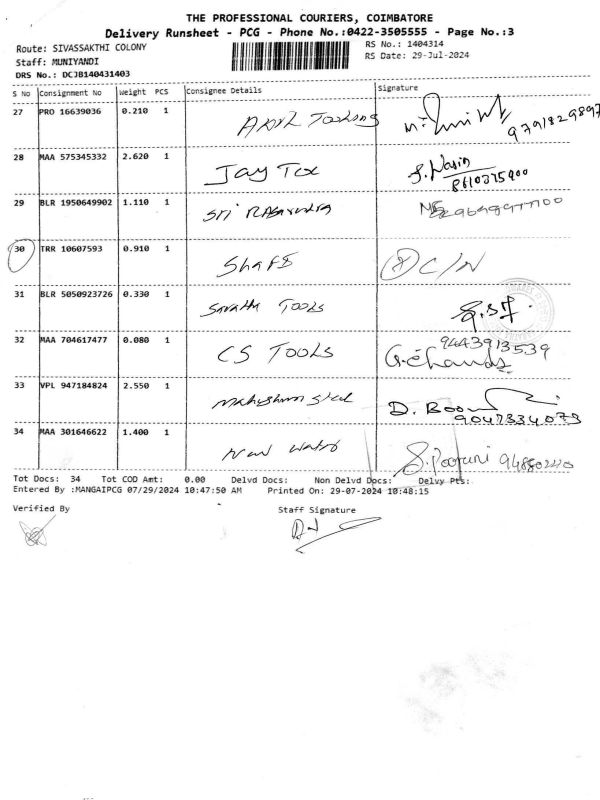 THE PROFESSIONAL COURIERS, COIMBATORE
Delivery Runsheet - PCG - Phone No.:0422-3505555 - Page No.:3
Route: SIVASSAKTHI COLONY RS No.: 1404314
Staff: MUNIYANDI RS Date: 29-Jul-2024
DRS No.: DCJB140431403
S No Consignment No Weight PCS Consignee Details Signature
27 PRO 16639036 0.210 1 Tooling 9791829897
28 MAA 575345332 2.620 1 Jay Tex 8610375900
29 BLR 1950649902 1.110 1 Sri
30 TRR 10607593 0.910 1 Shafi C/N
31 BLR 5050923726 0.330 1 Tools
32 MAA 704617477 0.080 1 CS TOOLS 9443913539
33 VPL 947184824 2.550 1 D. 9047334073
34 MAA 301646622 1.400 1 New
Tot Docs: 34 Tot COD Amt: 0.00 Delvd Docs: Non Delvd Docs: Delvy Pts:
Entered By :MANGAIPCG 07/29/2024 10:47:50 AM Printed On: 29-07-2024 10:48:15
Verified By Staff Signature